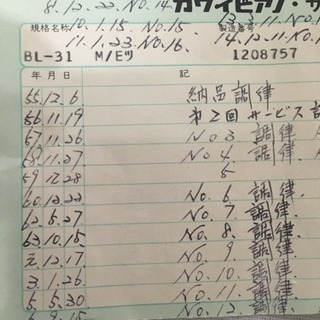 8.12.22 No.14 カワイピアノ・サ
規格名称 10.1.15 No.15 製造番号 13.3.11 No.
11.1.23 No.16. 14.12.11 No.
BL-31 M/Eツ 1208757
年月日 記
55.12.6 納品調律
56.11.19 第2回サービス調
57.11.26 No 3 調律
58.11.27 No 4 調律
59.12.28 5
60.12.22 No. 6 調律
62.5.27 No. 7 調律.
63.10.15 No. 8. 調律.
元.12.17 No. 9 調律.
3.1.26 No. 10. 調律.
5.5.30 No. 11. 調律.
6.9.15 No. 12. 調律